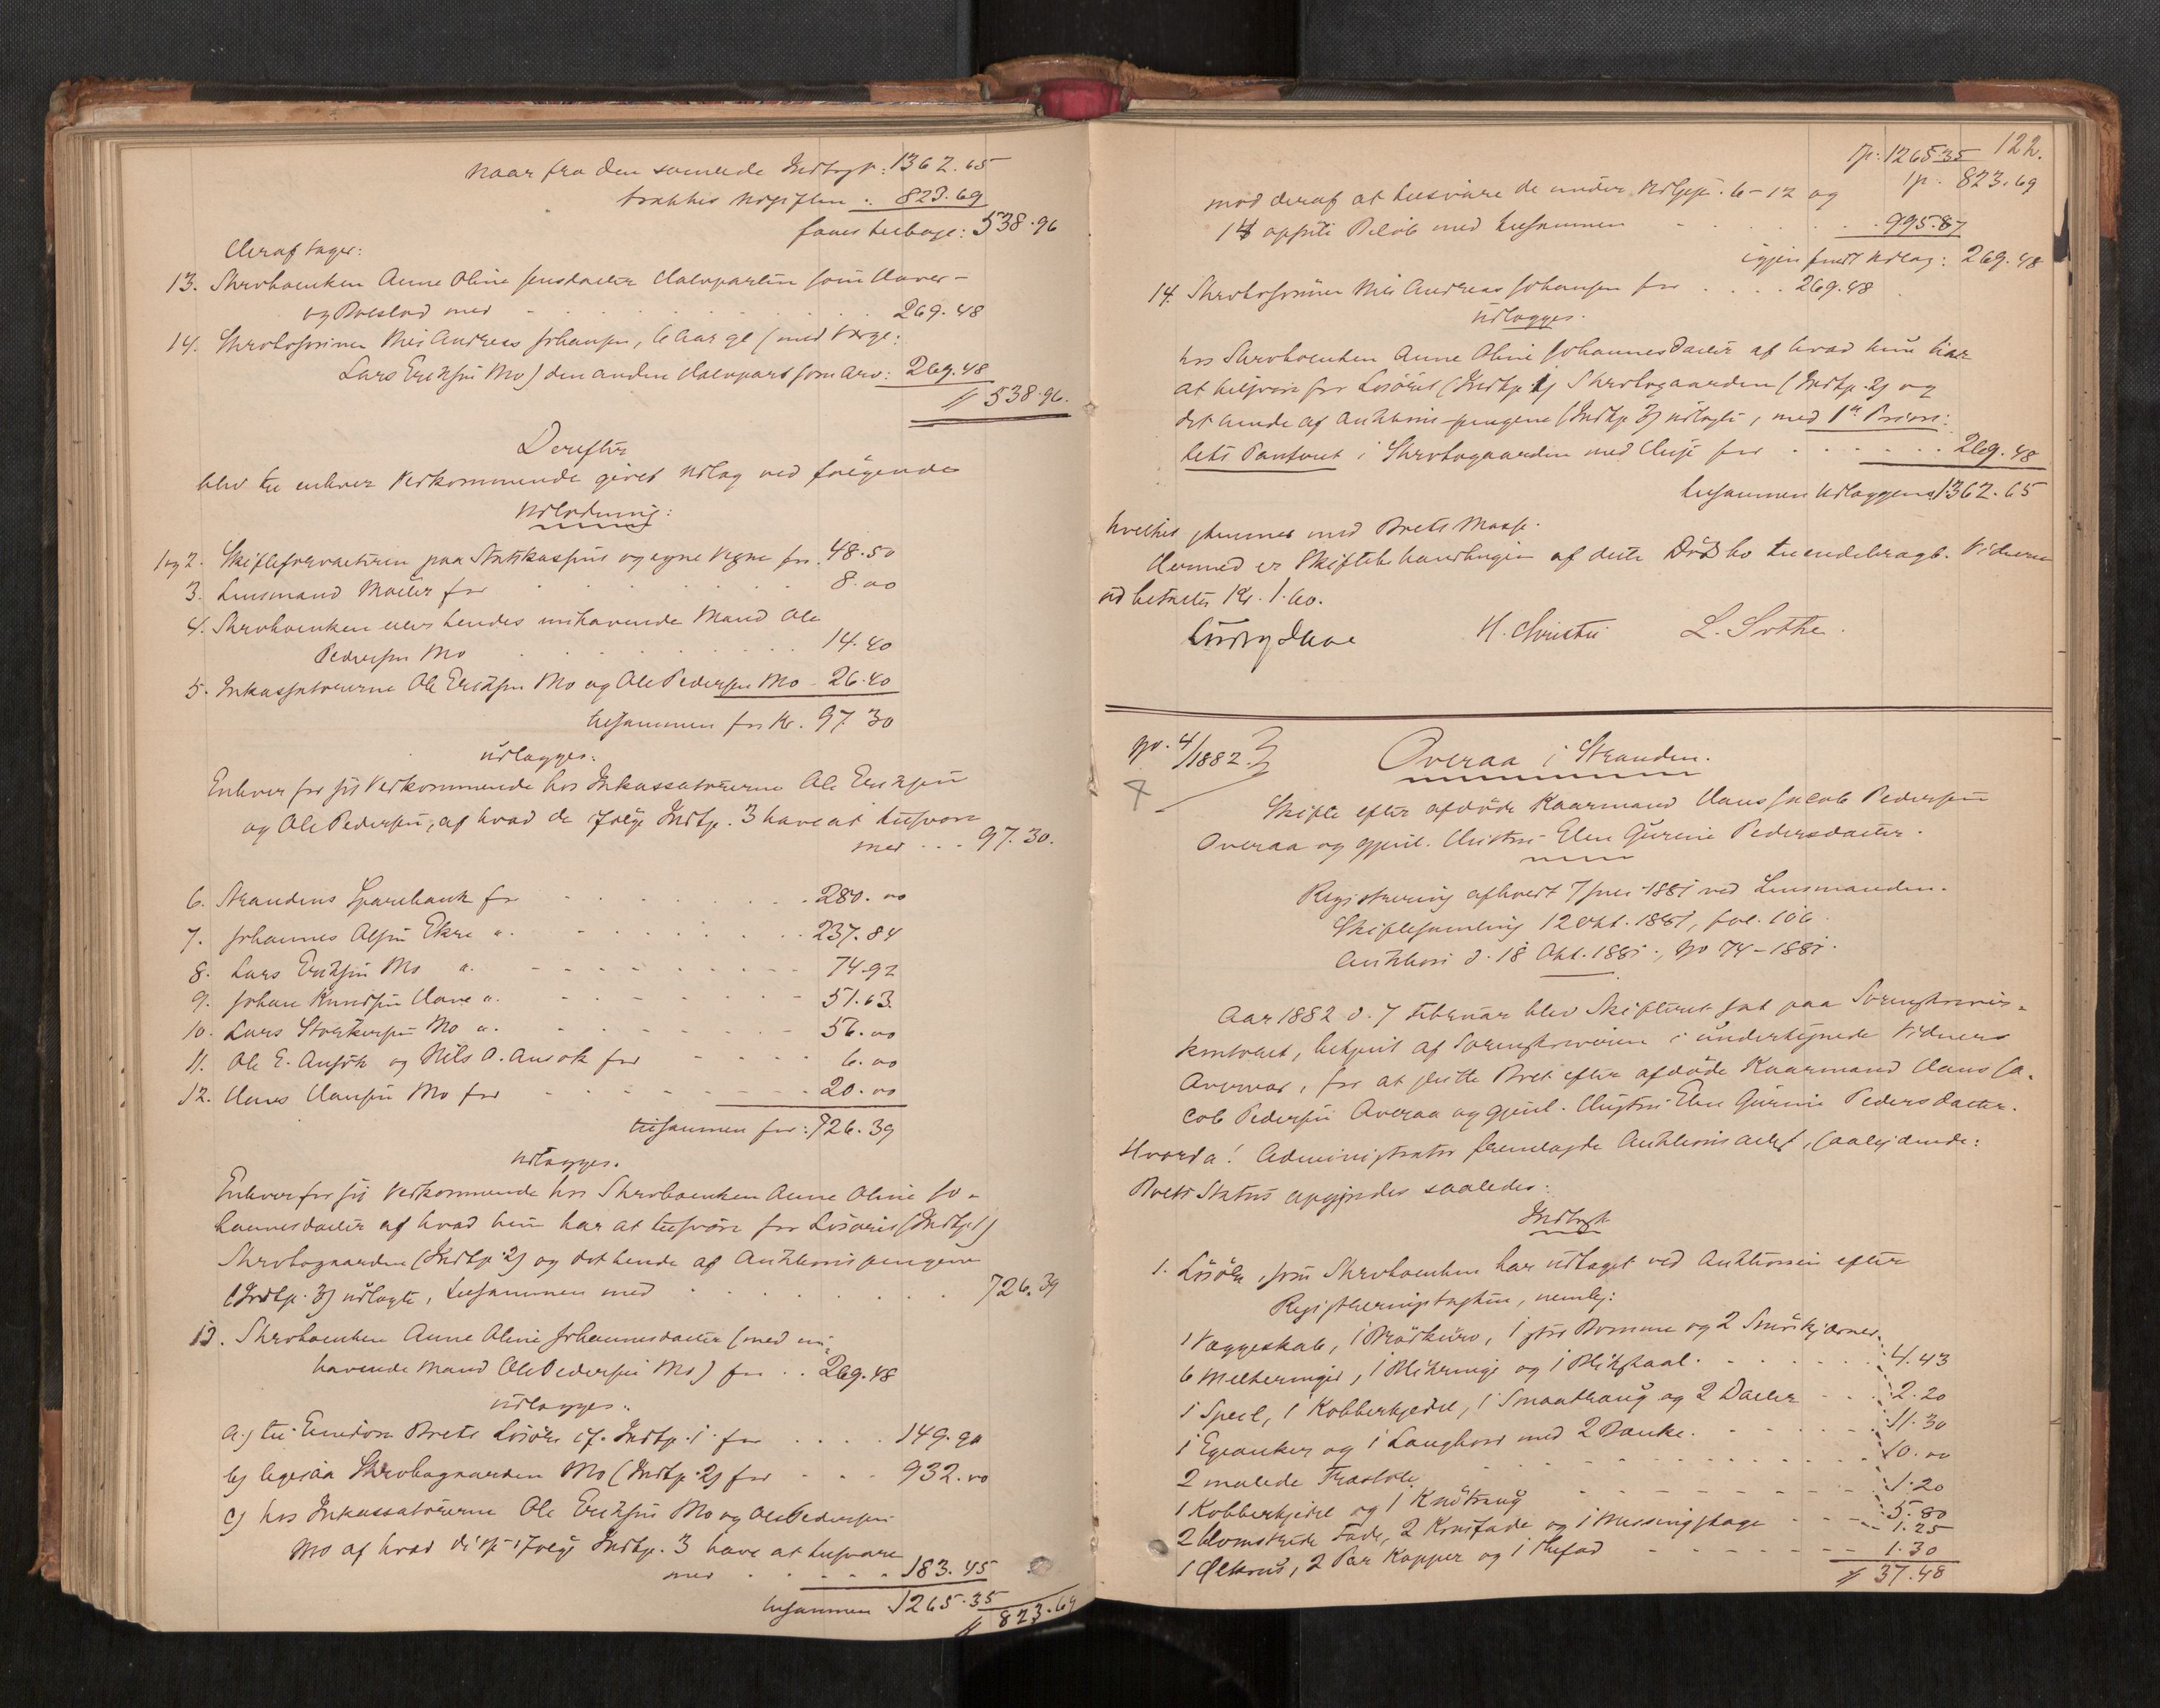 naar fra den samlede Indtægt: 1362.65
trækkes Udgiften . 823.69
faaes tilbage: 538.96
Heraf tager:
13. Skrvboenken Anne Oline Jensdatter Halvparten som Hoved-
og Boeslod med 269.48
14. Skrvbosønnen Nils Andreas Johansen, 6 Aar gl (med Værge:
Lars Eriksen Mo) den anden Halvpart som Arv: 269.48
538.96.
Derefter
blev til enhver Vedkommende givet Udlæg ved følgende
Udlodning:
1 og 2. Skifteforvalteren paa Statskassens og egne Vegne for. 48.50
3. Lensmand Møller for 8.00
4. Skrvboenken eller hendes nuhavende Mand Ole
Pedersen Mo 14.40
5. Inkassatorerne Ole Eriksen Mo og Ole Pedersen Mo 26.40
tilsammen for Kr. 97.30
udlægges:
Enhver for sit Vedkommende hos Inkassatorerne Ole Eriksen
og Ole Pedersen, af hvad de ifølge Indtp. 3 have at tilsvare
med . . . 97.30.
6. Strandens Sparebank for 280.00
7. Johannes Olsen Ekre ". 237.84
8. Lars Eriksen Mo ". 74.92
9. Johan Knudsen Hove ". 51.63
10. Lars Storkersen Mo ". 56.00
11. Ole E. Ansok og Nils O. Ansok for 6.00
12. Hans Hansen Mo for 20.00
tilsammen for: 726.39
udlægges.
Enhver for sit Vedkommende hos Skrvboenken Anne Oline Jo-
hannesdatter af hvad hun har at tilsvare for Løsøret (Indtp 1)
Skrvbogaarden (Indtp. 2) og det hende af Auktionspengene
(Indtp. 3) udlagte, tilsammen med 726.39
13. Skrvboenken Anne Oline Johannesdatter (med nu-
havende Mand Ole Pedersen Mo) for . . 269.48
udlægges:
a.) til Eiendom Boets Løsøre cf. Indtp. 1 for 149.90
b) ligesaa Skrvbogaarden Mo (Indtp. 2) for 932.00
c) hos Inkassatorerne Ole Eriksen Mo og Ole Pedersen
Mo af hvad disse ifølge Indtp. 3 have at tilsvare
med 183.45
tilsammen 1265.35
823.69
122.
Tp: 1265.35
Tp. 823.69
mod deraf at tilsvare de under Udgp. 6-12 og
14 opførte Beløb med tilsammen 995.87
igjen fuldt Udlæg: 269.48
14. Skrvbosønnen Nils Andreas Johansen for 269.48
udlægges.
hos Skrvboenken Anne Oline Johannesdatter af hvad hun har
at tilsvare for Løsøret (Indtp 1) Skrvbogaarden (Indtp. 2) og
det hende af Auktions-pengene (Indtp 3) udlagte, med 1ste Priori-
tets Panteret i Skrvbogaarden med Huse for 269.48
tilsammen Udlæggene 1362.65
hvilket stemmer med Boets Masse.
Hermed er Skiftebehandlingen af dette Dødsbo tilendebragt. Vidnerne
ud betaltes Kr. 1.60.
H. Christie L. Sothe.
No. 4/1882.
Overaa i Stranden.
Skifte efter afdøde Kaarmand Hans Jacob Pedersen
Overaa og gjenl. Hustru Elen Gurine Pedersdatter.
Registrering afholdt 7 Juni 1881 ved Lensmanden.
Skiftesamling 12 Okt. 1881, fol. 106.
Auktion d. 18 Okt. 1881, No 74-1881.
Aar 1882 d. 7 Februar blev Skifteret sat paa Sorenskriver-
kontoret, betjent af Sorenskriveren i undertegnede Vidners
Overvær, for at slutte Boet efter afdøde Kaarmand Hans Ja-
cob Pedersen Overaa og gjenl. Hustru Elen Gurine Pedersdatter.
Hvorda! Administrator fremlagde Auktionsaktet, saalydende:
Boets Status opgjordes saaledes:
Indtægt
1. Løsøre, som Skrvboenken har udtaget ved Auktionen efter
Registreringstaxten, nemlig:
1 Væggeskab, 1 Brødkurv, 1 stor Bomme og 2 Smørkjerner. 4.43
6 Melkeringer, 1 Blikringe og 1 Blikstaal. 2.20
1 Speil, 1 Kobberkjedel, 1 Smaatraug og 2 Daller 11.30
1 Egeanker og 1 Langbord med 2 Bænke. 10.00
2 malede Træstole 1.20
1 Kobberkjedel og 1 Knötraug 5.80
2 blomstrede Fade, 2 Kornfade og 1 Messingstage 1.25
1 Ølkrus, 2 Par Kopper og 1 Thefad 1.30
37.48